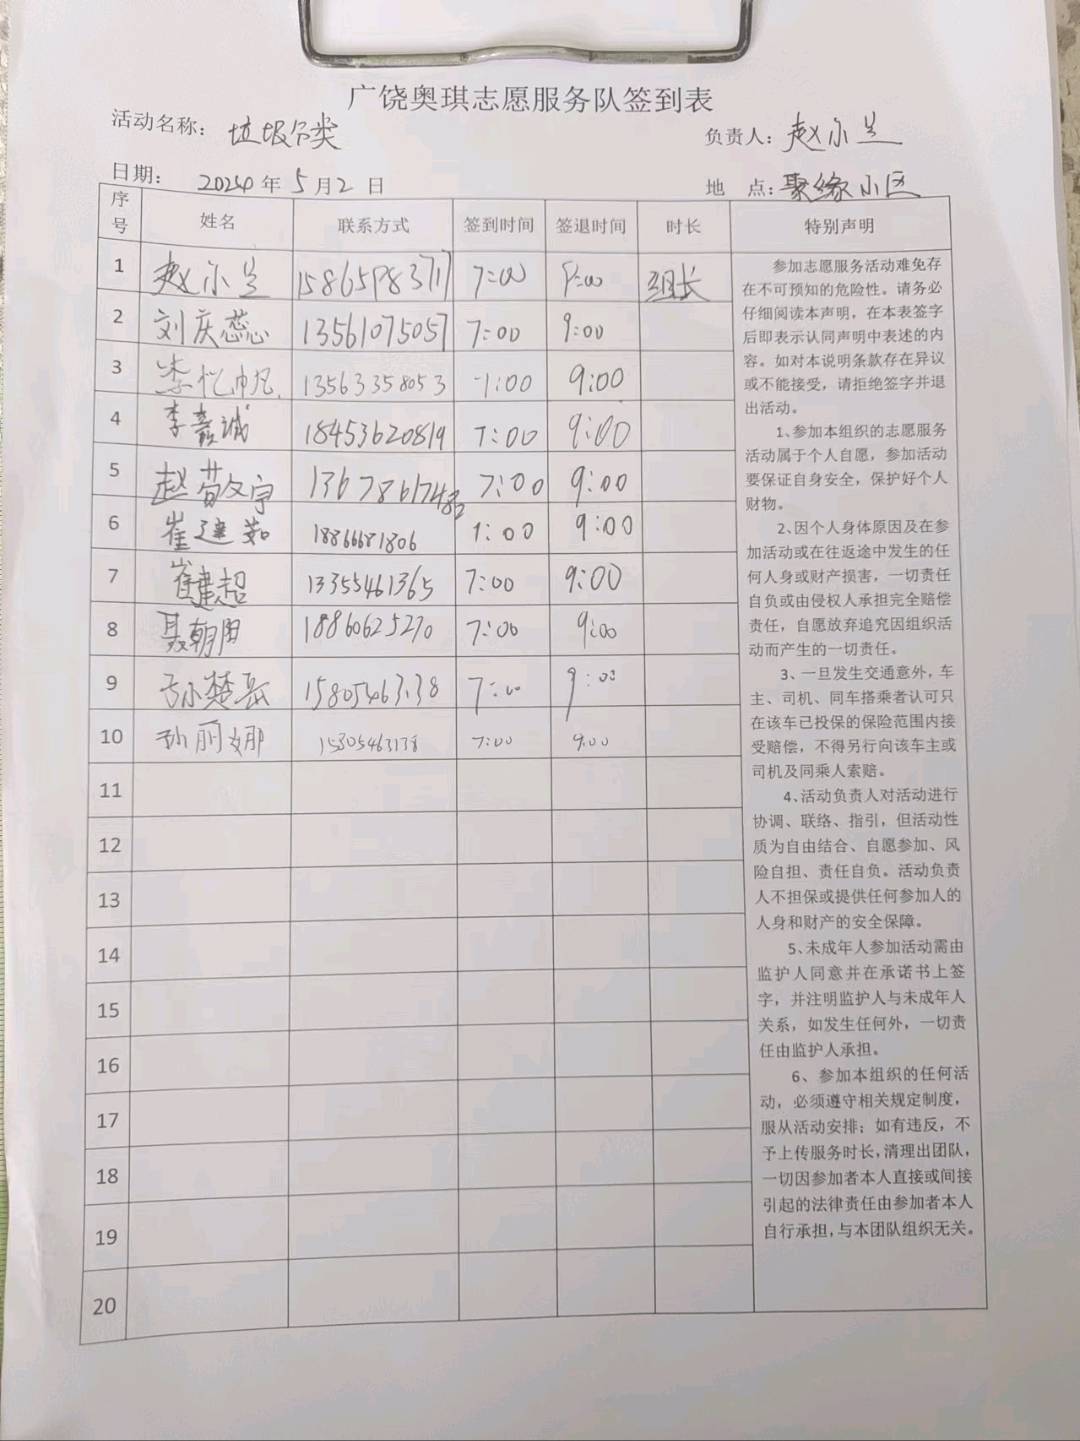 广饶奥琪志愿服务队签到表
活动名称: 垃圾分类
负责人: 赵小兰
日期: 2024年5月2日
地 点: 聚缘小区
序号 姓名 联系方式 签到时间 签退时间 时长 特别声明
1 赵小兰 7:00 9:00 组长
2 刘庆蕊 13561075057 7:00 9:00
3 13563358053 7:00 9:00
4 李嘉诚 18453620819 7:00 9:00
5 7:00 9:00
6 崔建茹 18866681806 7:00 9:00
7 崔建超 13355461365 7:00 9:00
8 聂朝用 18860625270 7:00 9:00
9 7:00 9:00
10 孙丽娜 15805463138 7:00 9:00
11
12
13
14
15
16
17
18
19
20
参加志愿服务活动难免存
在不可预知的危险性。请务必
仔细阅读本声明，在本表签字
后即表示认同声明中表述的内
容。如对本说明条款存在异议
或不能接受，请拒绝签字并退
出活动。
1、参加本组织的志愿服务
活动属于个人自愿，参加活动
要保证自身安全，保护好个人
财物。
2、因个人身体原因及在参
加活动或在往返途中发生的任
何人身或财产损害，一切责任
自负或由侵权人承担完全赔偿
责任，自愿放弃追究因组织活
动而产生的一切责任。
3、一旦发生交通意外，车
主、司机、同车搭乘者认可只
在该车已投保的保险范围内接
受赔偿，不得另行向该车主或
司机及同乘人索赔。
4、活动负责人对活动进行
协调、联络、指引，但活动性
质为自由结合、自愿参加、风
险自担、责任自负。活动负责
人不担保或提供任何参加人的
人身和财产的安全保障。
5、未成年人参加活动需由
监护人同意并在承诺书上签
字，并注明监护人与未成年人
关系，如发生任何外，一切责
任由监护人承担。
6、参加本组织的任何活
动，必须遵守相关规定制度，
服从活动安排；如有违反，不
予上传服务时长，清理出团队，
一切因参加者本人直接或间接
引起的法律责任由参加者本人
自行承担，与本团队组织无关。